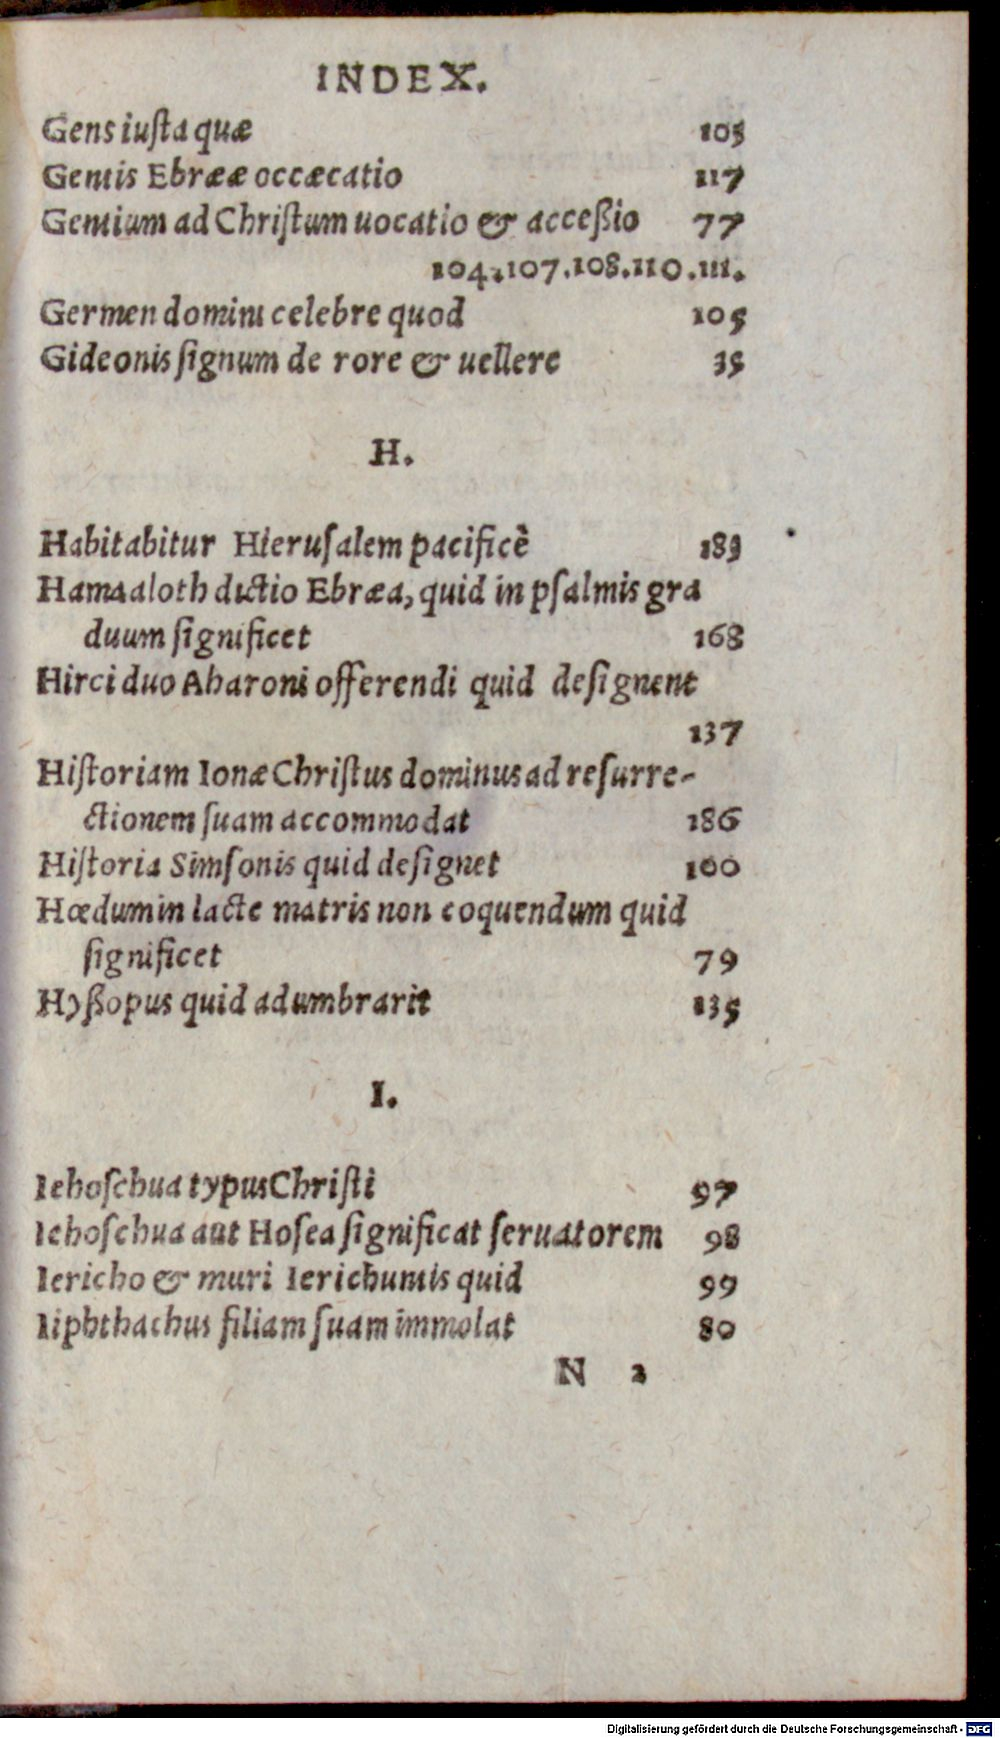 INDEX.
Gens iusta quæ 105
Gentis Ebrææ occæcatio 117
Gentium ad Christum uocatio & acceßio 77
104.107.108.110.111.
Germen domini celebre quod 105
Gideonis signum de rore & uellere 35
H.
Habitabitur Hierusalem pacificè 189
Hamaaloth dictio Ebræa, quid in psalmis gra
duum significet 168
Hirci duo Aharoni offerendi quid designent
137
Historiam Ionæ Christus dominus ad resurre-
ctionem suam accommodat 186
Historia Simsonis quid designet 100
Hœdum in lacte matris non coquendum quid
significet 79
Hyßopus quid adumbrarit 135
I.
Iehoschua typus Christi 97
Iehoschua aut Hosea significat seruatorem 98
Iericho & muri Ierichuntis quid 99
Iiphthachus filiam suam immolat 80
N 2
Digitalisierung gefördert durch die Deutsche Forschungsgemeinschaft - DFG